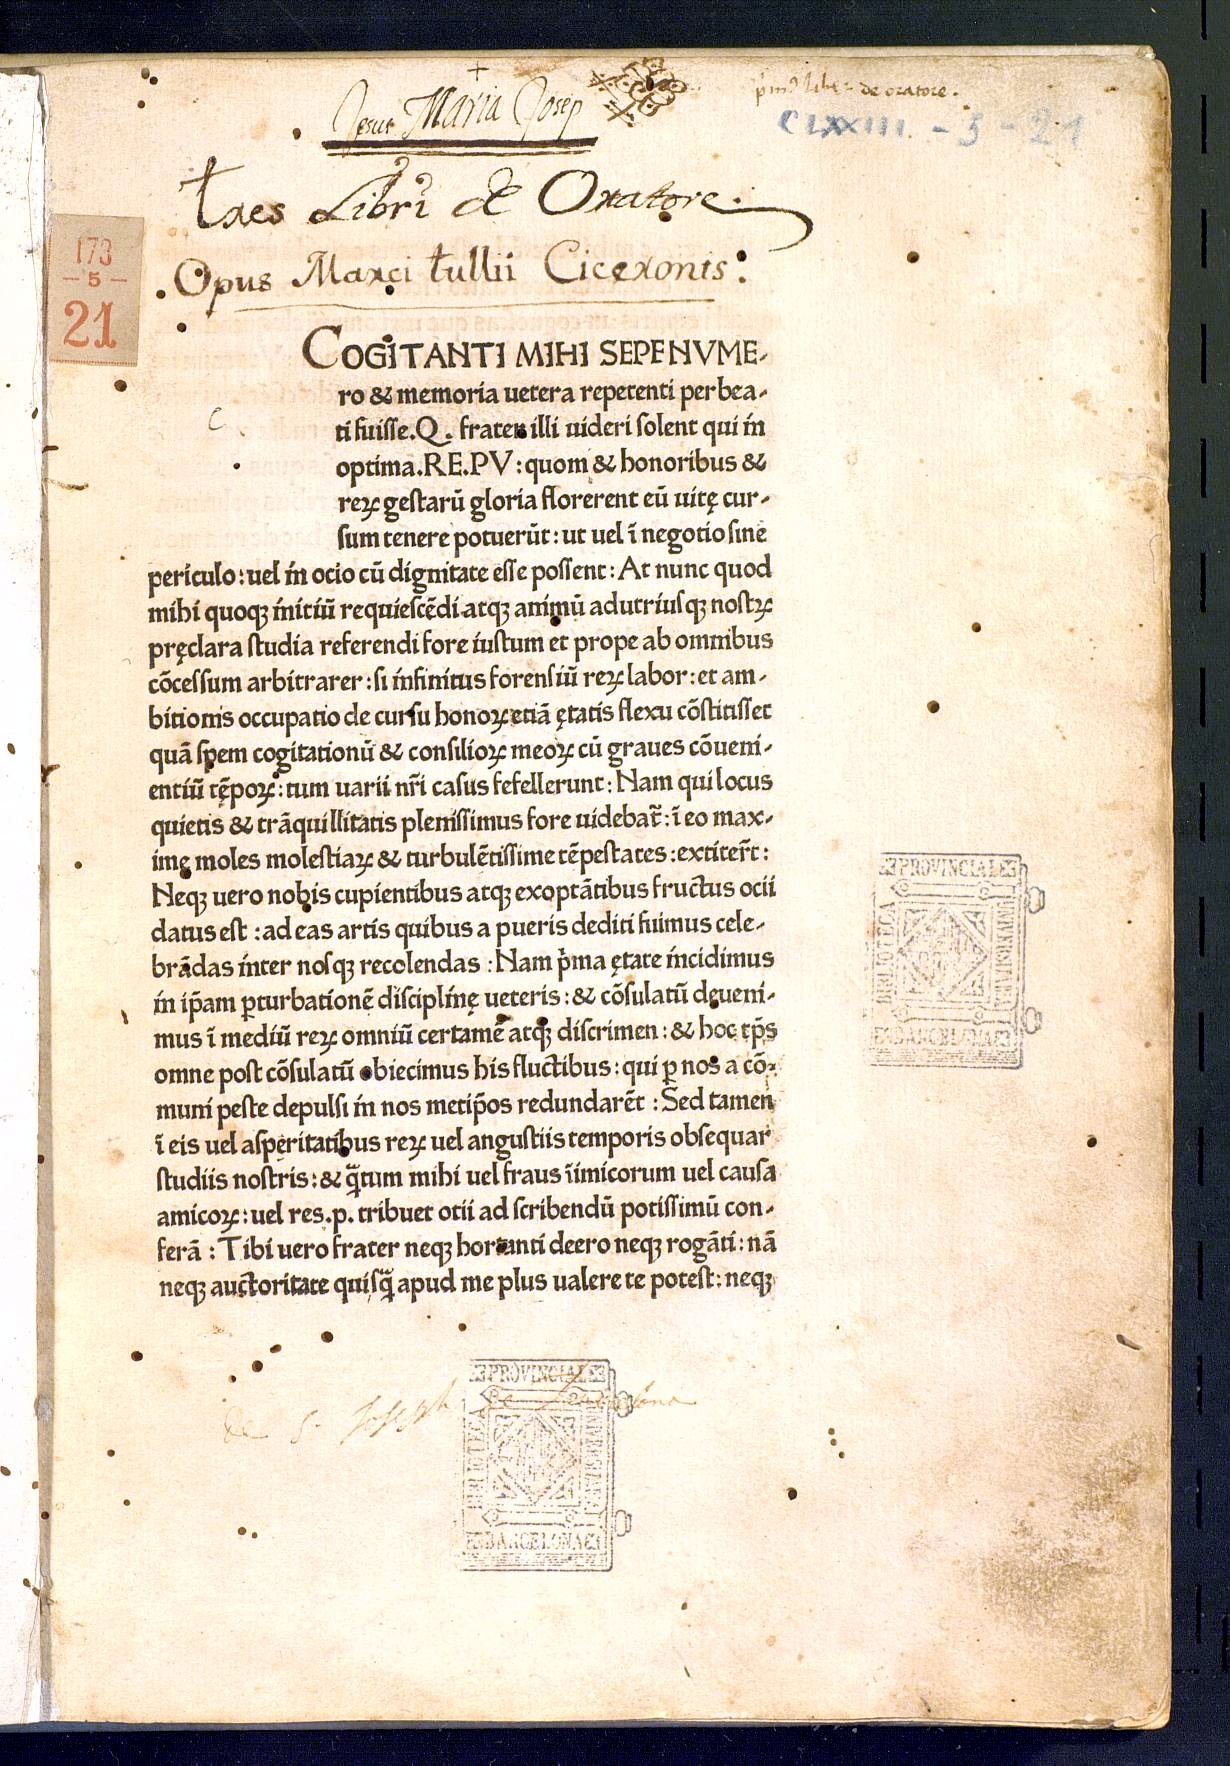 p̄mꝰ libeꝛ de oratore.
CLXXIII. - 5 - 21
Jesus Maria Josep
tres Libri de Oratore.
Opus Marci tullii Ciceronis:
173
- 5 -
21
COGITANTI MIHI SEPENVME-
ro & memoria uetera repetenti perbea-
ti fuisse.Q. frater illi uideri solent qui in
optima.RE.PV: quom & honoribus &
reꝝ gestarū gloria florerent eū uitę cur-
sum tenere potuerūt: ut uel ī negotio sine
periculo: uel in ocio cū dignitate esse possent: At nunc quod
mihi quoqꝫ initiū requiescēdi atqꝫ animū ad utriusqꝫ nostꝝ
pręclara studia referendi fore iustum et prope ab omnibus
cōcessum arbitrarer: si infinitus forensiū reꝝ labor: et am-
bitionis occupatio de cursu honoꝝ etiā ętatis flexu cōstitisset
quā spem cogitationū & consilioꝝ meoꝝ cū graues cōueni-
entiū tēpoꝝ: tum uarii nr̄i casus fefellerunt: Nam qui locus
quietis & trāquillitatis plenissimus fore uidebat̄: ī eo max-
imę moles molestiaꝝ & turbulētissime tēpestates: extiter̄t:
Neqꝫ uero nobis cupientibus atqꝫ exoptātibus fructus ocii
datus est: ad eas artis quibus a pueris dediti fuimus cele-
brādas inter nosqꝫ recolendas: Nam p̄ma ętate incidimus
in ip̄am ꝑturbationē disciplinę ueteris: & cōsulatū deueni-
mus ī mediū reꝝ omniū certamē atqꝫ discrimen: & hoc tp̄s
omne post cōsulatū obiecimus his fluctibus: qui ꝑ nos a cō-
muni peste depulsi in nos metip̄os redundarēt: Sed tamen
ī eis uel asperitatibus reꝝ uel angustiis temporis obsequar
studiis nostris: & q̄tum mihi uel fraus īimicorum uel causa
amicoꝝ: uel res.p. tribuet otii ad scribendū potissimū con-
ferā: Tibi uero frater neqꝫ hortanti deero neqꝫ rogāti: nā
neqꝫ auctoritate quisq̄ apud me plus ualere te potest: neqꝫ
PROVINCIAL
UNIVERSITARIA
BARCELONA
BIBLIOTECA
de S. Joseph de Barcelona
PROVINCIAL
UNIVERSITARIA
BARCELONA
BIBLIOTECA